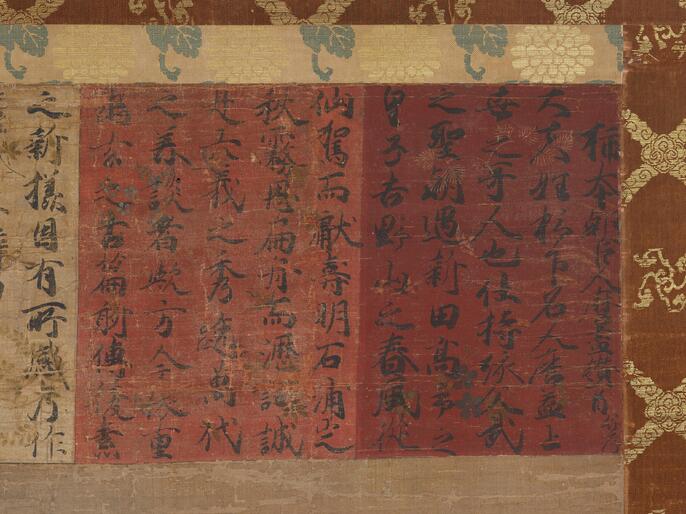 柿本朝臣人麿畫讚一首并序
大夫姓柿下名人麿蓋上
世之哥人也仕持統文武
之聖朝遇新田高市之
皇子吉野山之春風從
仙駕而獻壽明石浦之
秋霧思扁舟而瀝詞誠
是六義之秀逸萬代
之美談者歟方今依重
幽玄之古篇聊傳後素
之新樣因有所感乃作